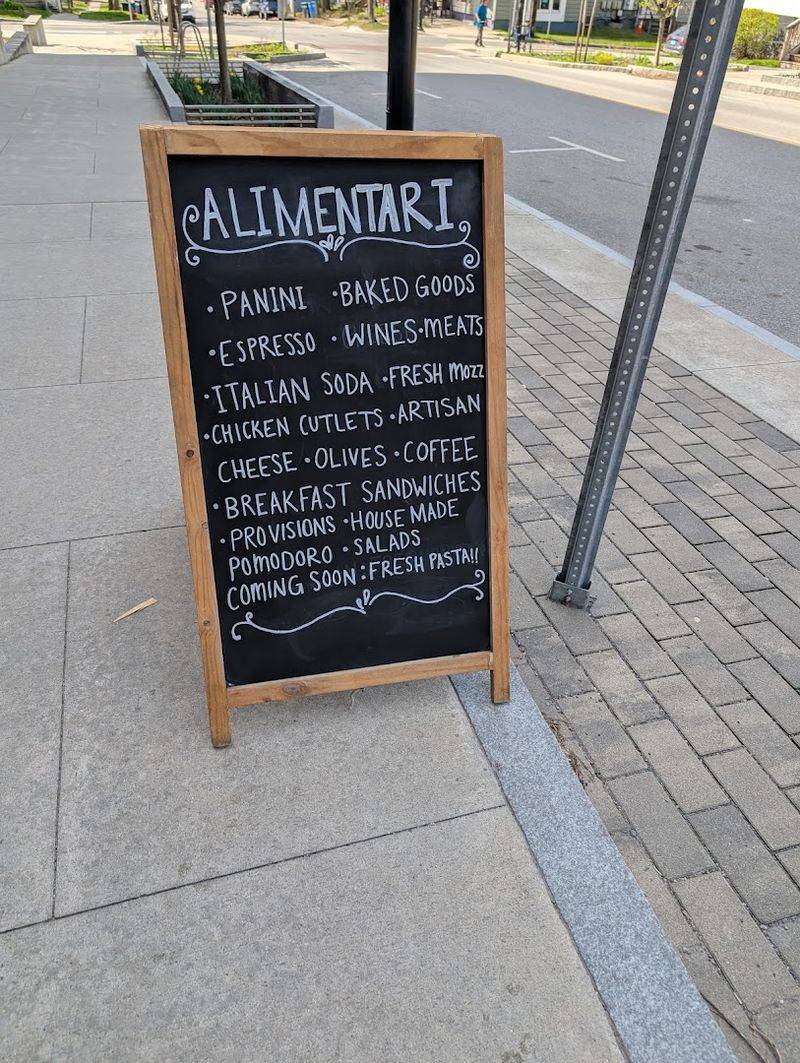 ALIMENTARI
• PANINI • BAKED GOODS
• ESPRESSO • WINES • MEATS
• ITALIAN SODA • FRESH MOZZ
• CHICKEN CUTLETS • ARTISAN
CHEESE • OLIVES • COFFEE
• BREAKFAST SANDWICHES
• PROVISIONS • HOUSE MADE
POMODORO • SALADS
COMING SOON: FRESH PASTA!!